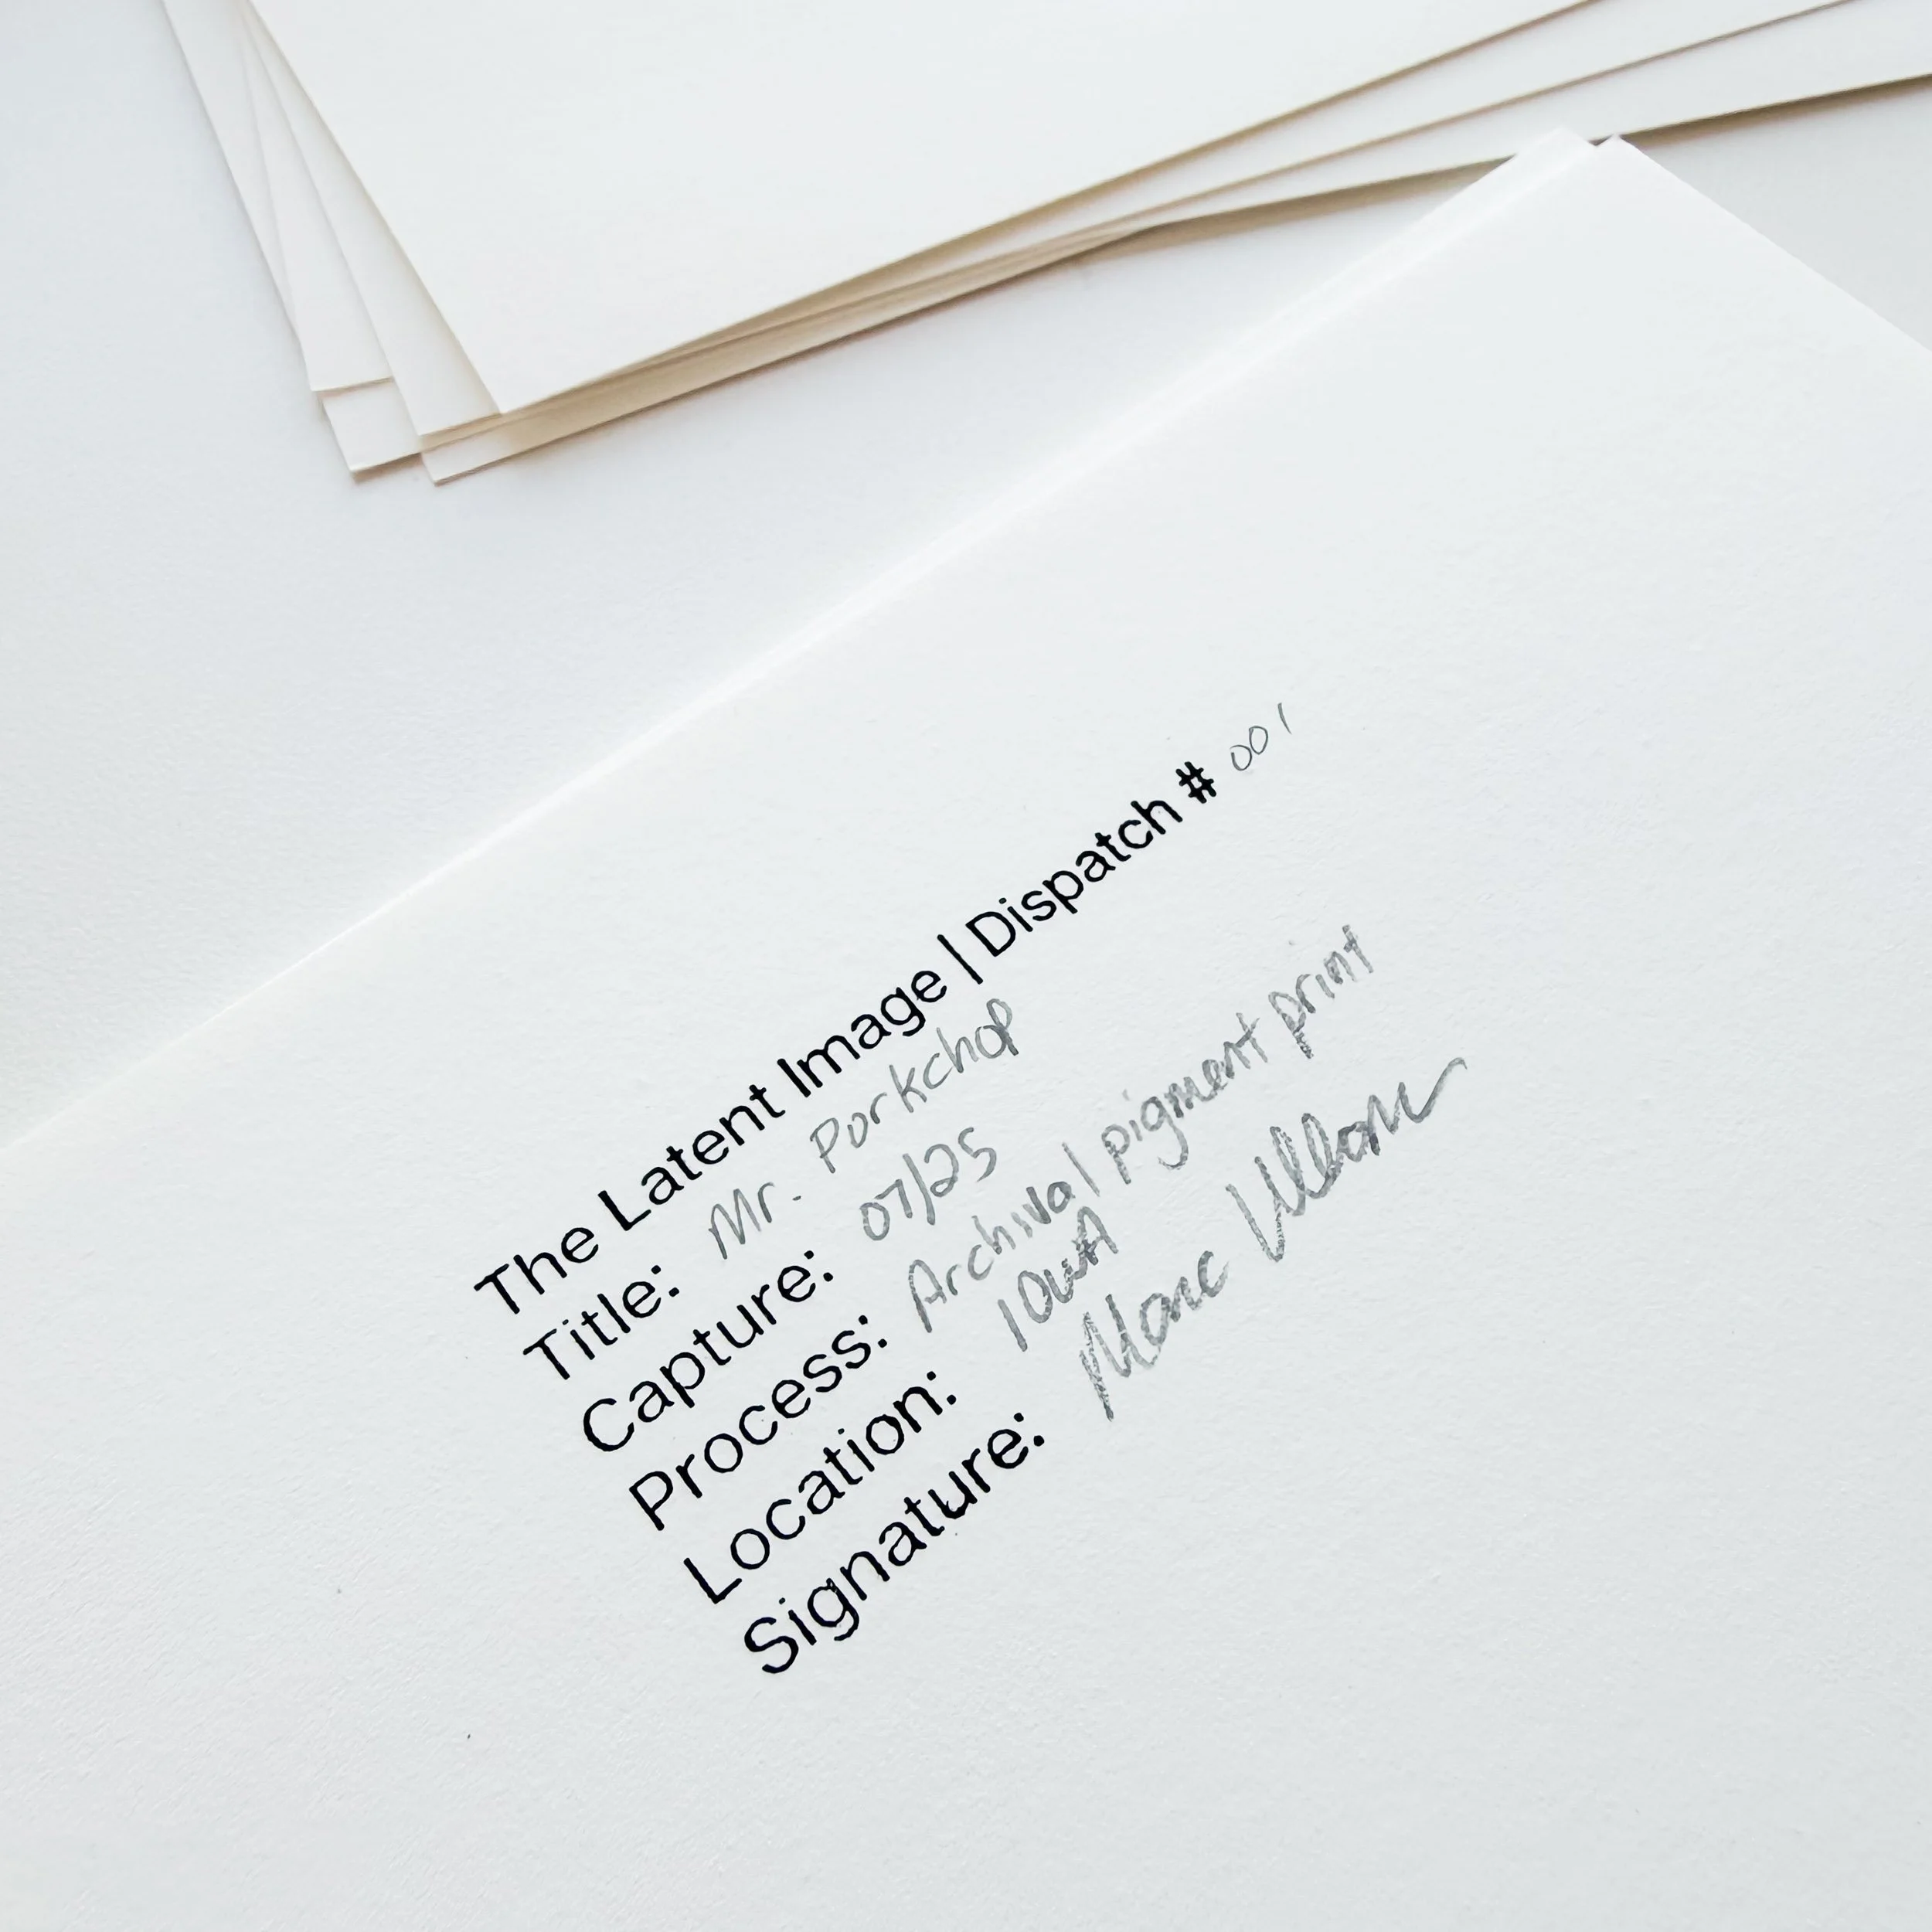 The Latent Image | Dispatch # 001
Title: Mr. Porkchop
Capture: 07/25
Process: Archival pigment print
Location: Iowa
Signature: Marc